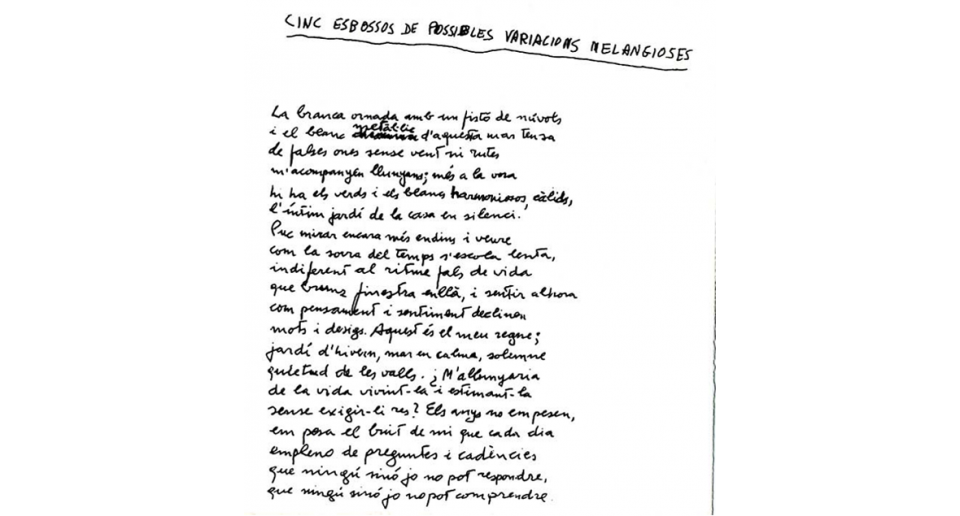 CINC ESBOSSOS DE POSSIBLES VARIACIONS MELANGIOSES
La branca ornada amb un fistó de núvols
i el blanc metàl·lic d'aquesta mar tensa
de falses ones sense vent ni rutes
m'acompanyen llunyans; més a la vora
hi ha els verds i els blancs harmoniosos, càlids,
l'íntim jardí de la casa en silenci.
Puc mirar encara més endins i veure
com la sorra del temps s'escola lenta,
indiferent al ritme fals de vida
que brunz finestra enllà, i sentir alhora
com pensament i sentiment declinen
mots i desigs. Aquest és el meu regne;
jardí d'hivern, mar en calma, solemne
quietud de les valls. ¿M'allunyaria
de la vida vivint-la i estimant-la
sense exigir-li res? Els anys no em pesen,
em pesa el buit de mi que cada dia
empleno de preguntes i cadències
que ningú sinó jo no pot respondre,
que ningú sinó jo no pot comprendre.